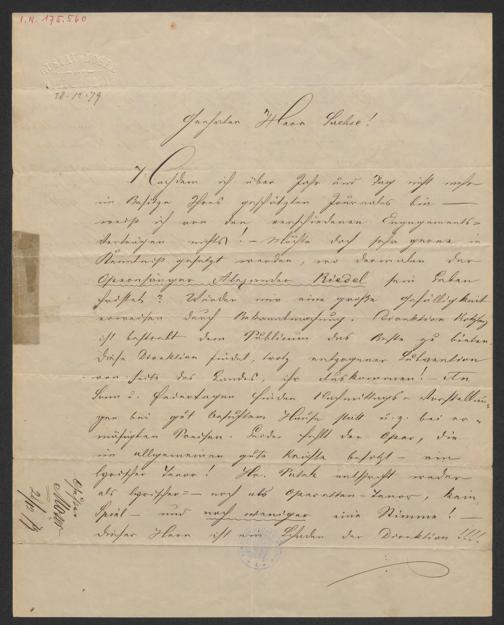 I.N. 175.560
28.12.79
Geehrter Herr Sachse!
Nachdem ich über Jahr und Tag nicht mehr
im Besitze Ihres geschätzten Journales bin —
weiß ich von den verschiedenen Engagements-
Verträgen nichts! – Möchte doch sehr gerne in
Kenntniß gesetzt werden, wo dermalen der
Opernsänger Alexander Riedel sein Leben
fristet? Würden mir eine große Gefälligkeit
erweisen durch Bekanntmachung. Direktion
ist bestrebt dem Publicum das Beste zu bieten.
Diese Direktion findet, trotz entzogener Subvention
von Seite des Landes, ihr Auskommen! – An
Sonn u. Feiertagen finden Nachmittags-Vorstellun-
gen bei gut besuchtem Hause statt u. z. bei er-
mäßigten Preisen. Leider fehlt der Oper, die
im allgemeinen gute Kräfte besitzt – ein
lyrischer Tenor! Hr. entspricht weder
als lyrischer – noch als Operetten-Tenor, kein
Spiel – und noch weniger eine Stimme! –
Dieser Herr ist ein Schaden der Direktion!!!!